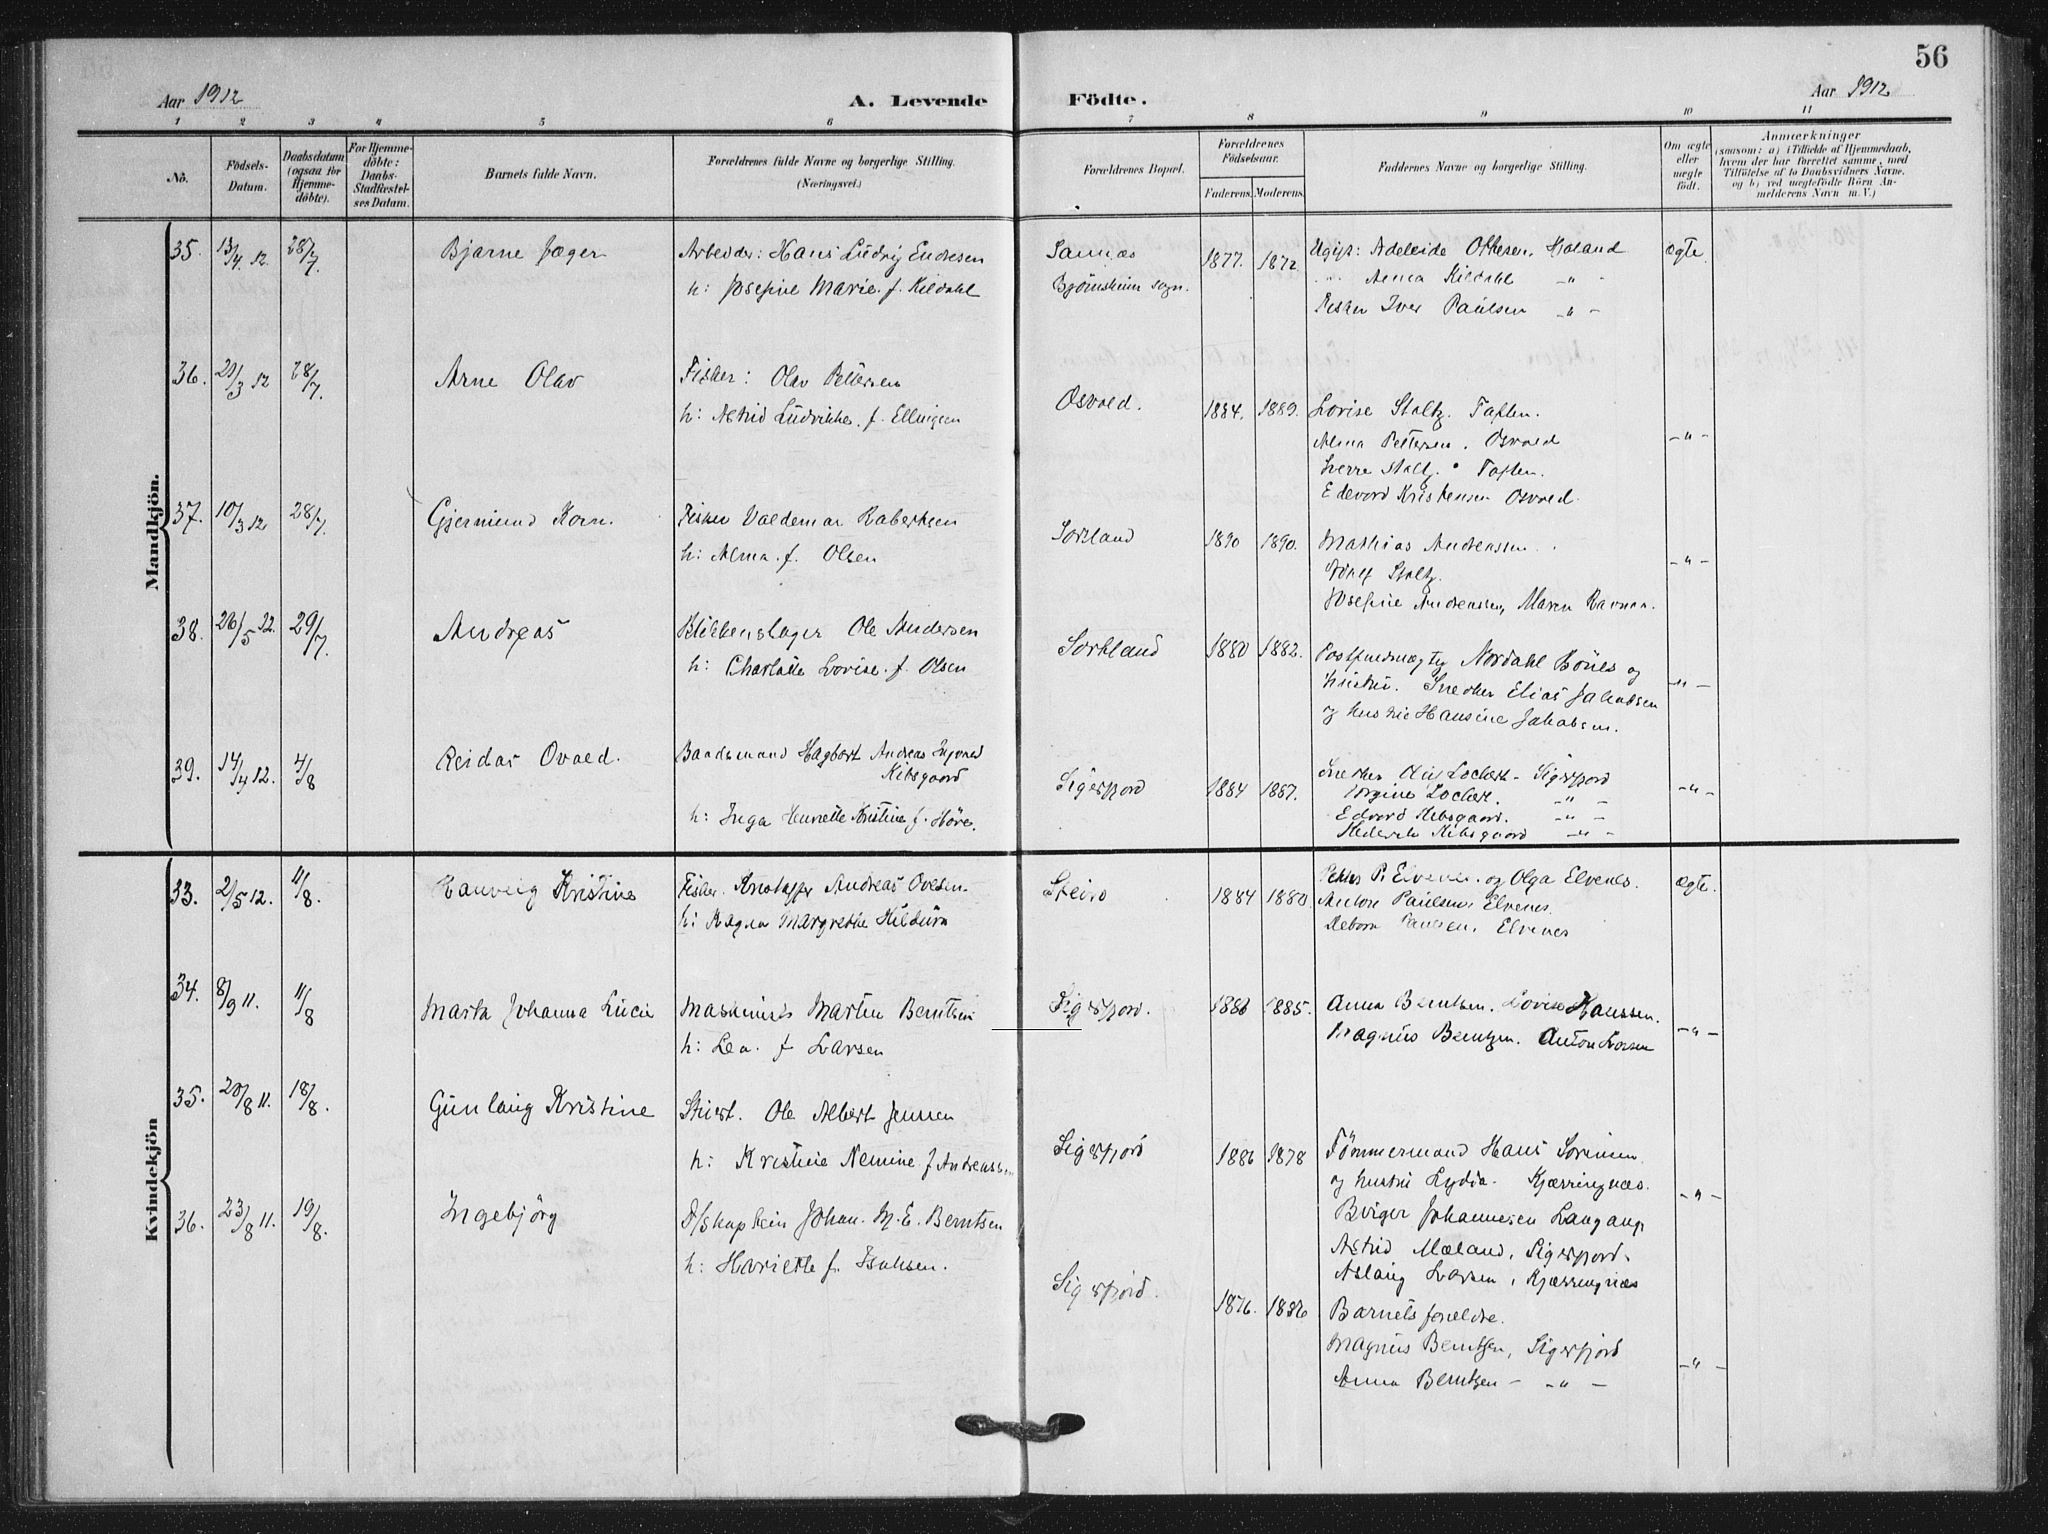 56
Aar 1912
A. Levende Födte.
Aar 1912
1 2 3 4 5 6 7 8 9 10 11
No.
Födsels-Datum.
Daabsdatum (ogsaa for Hjemmedöbte).
For Hjemmedöbte: Daabs-Stadfæstelses Datum.
Barnets fulde Navn.
Forældrenes fulde Navne og borgerlige Stilling.
(Næringsvei.)
Forældrenes Bopæl.
Forældrenes Födselsaar.
Faderens. Moderens.
Faddernes Navne og borgerlige Stilling.
Om ægte eller uægte födt.
Anmærkninger
(saasom: a) i Tilfælde af Hjemmedaab,
hvem der har forrettet samme, med
Tilföielse af to Daabsvidners Navne.
og b) ved uægtefödte Börn An-
melderens Navn m. V.)
Mandkjön.
35. 13/4 12 28/7. Bjarne Jæger
Arbeider: Hans Ludvig Endresen
h: Josefine Marie f. Kildahl
Sannæs
Bjørnskin sogn.
1877. 1872
Ugift: Adeleide Ottesen, Haland
Anna Kildahl -"-
Fisker Iver Paulsen -"-
ægte
36. 20/3 12 28/7. Arne Olav
Fisker: Olav Pettersen
h: Astrid Ludvikke. f. Ellingsen
Osvold.
1884. 1889.
Lovise Stoltz. Toften.
Alma Pettersen. Osvold
Sverre Stoltz. Toften.
Edevord Kristensen Osvold.
-"-
37. 10/3 12 28/7. Gjermund Korn.
Fisker Valdemar Robertsen
h: Alma. f. Olsen
Sortland
1890 1890.
Mathias Andreassen.
Adolf Stoltz.
Josefine Andreassen, Maren Ravnaa.
-"-
38. 26/5 12. 29/7. Andreas
Blikkenslager Ole Andersen
h: Charlotte Lovise. f. Olsen
Sortland
1880 1882.
Postfuldmægtig Nordahl Bönes og
hustru. Snedker Elias Jakobsen
og hustru Hansine Jakobsen.
-"-
39. 14/4 12. 4/8 Reidar Ovold.
Baadsmand Hagbart Andreas Ingvald
Kibsgaard
h: Inga Henrette Kristine f. Höve.
Sigerfjord
1884 1887.
Snedker Oluf Lockert - Sigerfjord
Jörgine Lockert. -"-
Edvard Kibsgaard. -"-
Hederikke Kibsgaard -"-
-"-
Kvindekjön
33. 2/5 12. 11/8. Ranveig Kristine
Fisker. Kristoffer Andreas Ovesen
h: Ragna Margrethe Hildurn
Steiro
1884 1880
Petter P. Elvenes. og Olga Elvenes.
Anton Paulsen, Elvenes.
Debora Paulsen, Elvenes
ægte.
34. 8/9 11. 11/8 Marta Johanna Lucie
Maskinist Marten Berntsen
h: Lea. f Larsen
Sigerfjord.
1886 1885.
Anna Berntsen. Lovise Hanssen.
Magnus Berntsen. Anton Larsen
-"-
35. 20/8 11. 18/8. Gunlaug Kristine
Stuert. Ole Albert Jensen
h: Kristine Nemine f Andreassen
Sigerfjord
1886 1878
Tömmermand Hans Sörensen
og hustru Lydia. Kjærringnæs.
Birger Johannesen Langang.
Astrid Mæland, Sigerfjord.
Aslaug Larsen, Kjærringnæs
-"-
36. 23/8 11. 19/8. Ingebjörg
D/skaptein Johan. M. E. Berntsen
h: Hariette f. Isaksen.
Sigerfjord.
1876. 1886
Barnets forældre.
Magnus Berntsen, Sigerfjord
Anna Berntsen - -"-
-"-